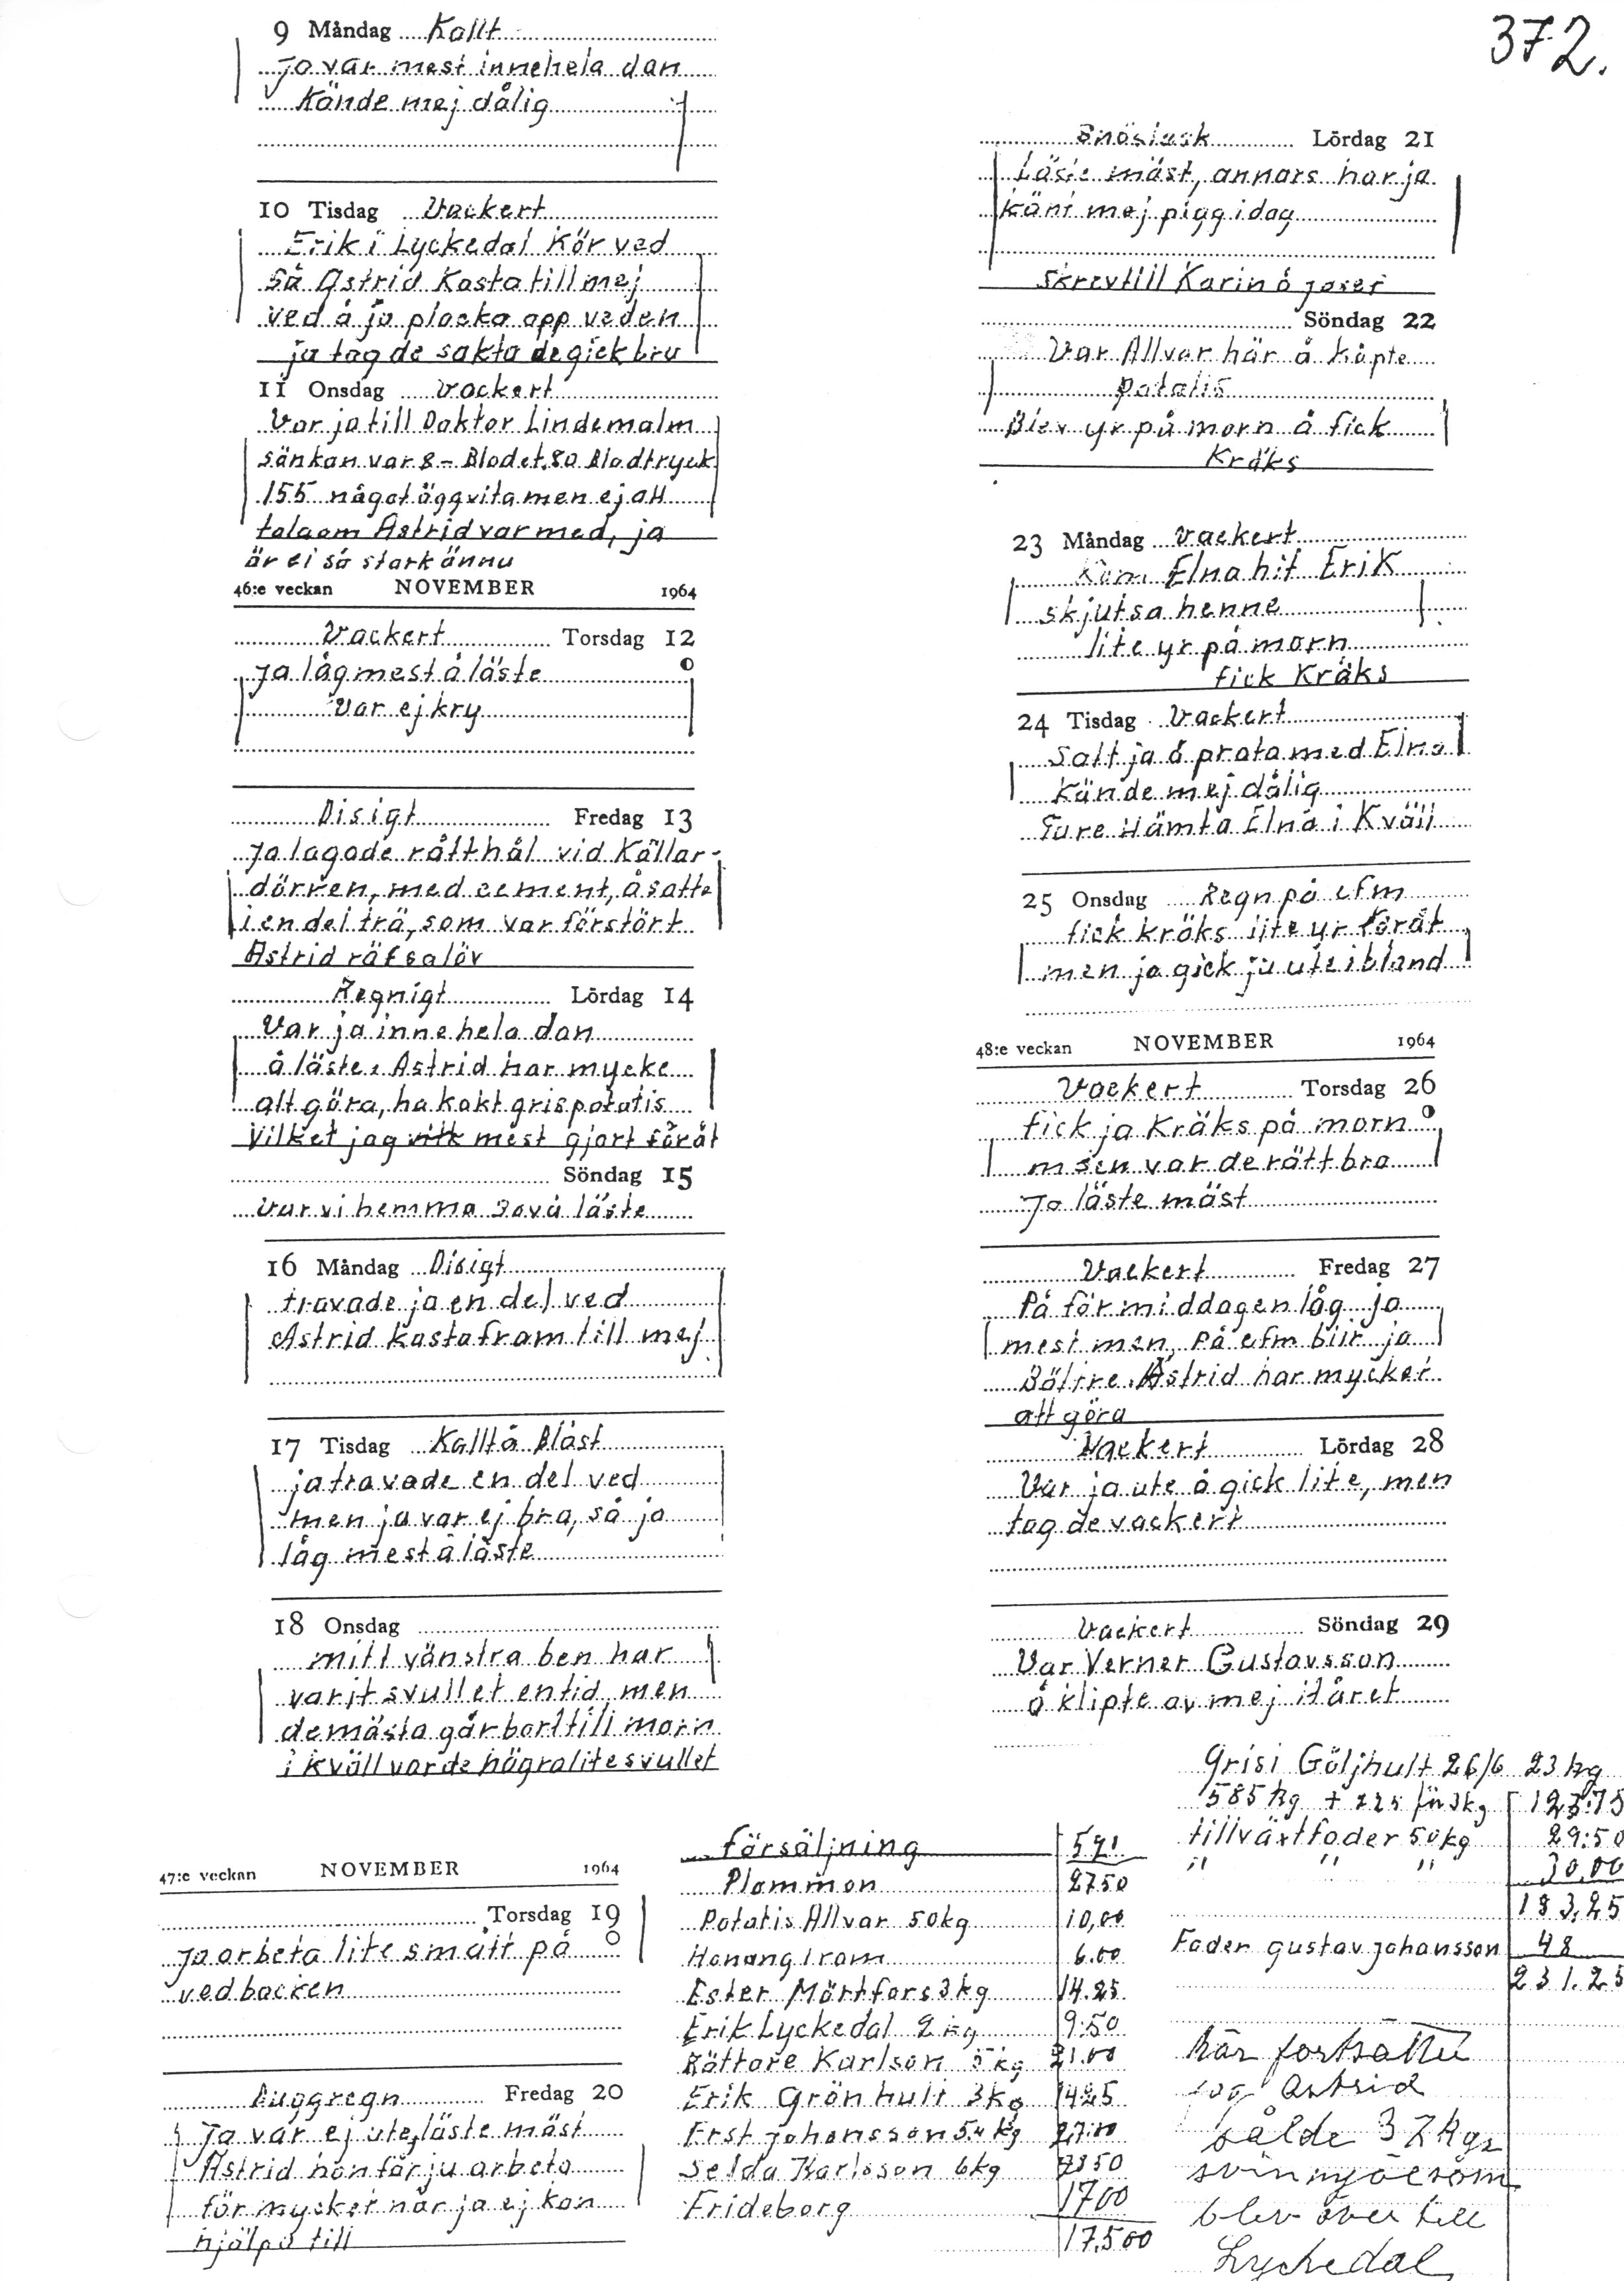 372.
9 Måndag Kallt
Ja var mest inne hela dan
Kände mej dålig
10 Tisdag Vackert
Erik i Lyckedal Kör ved
Så Astrid Kasta till mej
ved å ja plocka opp veden
ja tog de sakta de gick bra
11 Onsdag Vackert
Var ja till Doktor Lindemalm
sänkan var 8 - Blodet 80 Blodtryck
155 något äggvita men ej att
tala om Astrid var med, ja
är ei så stark ännu
46:e veckan NOVEMBER 1964
Vackert Torsdag 12
Ja låg mest å läste
Var ej kry
Disigt Fredag 13
Ja lagade råtthål vid Källar-
dörren, med cement, å satte
i en del trä, som var förstört
Astrid räfsa löv
Regnigt Lördag 14
Var ja inne hela dan
å läste, Astrid har mycke
att göra, ha kokt grispotatis
Vilket jag mest gjort föråt
Söndag 15
Var vi hemma Sov å läste
16 Måndag Disigt
travade ja en del ved
Astrid kasta fram till mej
17 Tisdag Kallt å Blåst
ja travade en del ved
men ja var ej bra, så ja
låg mest å läste
18 Onsdag
mitt vänstra ben har
varit svullet en tid, men
de mästa går bort till morn
i kväll var de några lite svullet
47:e veckan NOVEMBER 1964
Torsdag 19
Ja arbeta lite smått på
vedbacken
Duggregn Fredag 20
Ja var ej ute, läste mäst
Astrid hon får ju arbeta
för mycket när ja ej kan
hjälpa till
Snöslask Lördag 21
Läste mäst, annars har ja
känt mej pigg idag
skrev till Karin å
Söndag 22
Var Allvar här å köpte
potatis
Blev yr på morn å fick
Kräks
23 Måndag Vackert
Kom Elna hit Erik
skjutsa henne
lite yr på morn
fick Kräks
24 Tisdag Vackert
Satt ja å prata med Elna
Kände mej dålig
Ture Hämta Elna i Kväll
25 Onsdag Regn på efm
fick kräks lite yr föråt
men ja gick ju ute ibland
48:e veckan NOVEMBER 1964
Vackert Torsdag 26
fick ja Kräks på morn
m sen var de rätt bra
Ja läste mäst
Vackert Fredag 27
På förmiddagen låg ja
mest men, på efm blir ja
Bättre. Astrid har mycket
att göra
Vackert Lördag 28
Var ja ute å gick lite, men
tog de vackert
Vackert Söndag 29
Var Verner Gustavsson
å klipte av mej Håret
försäljning 591
Plommon 27.50
Potatis Allvar 50kg 10,00
Honung 1 ram 6.00
Ester Mörtfors 3kg 14.25
Erik Lyckedal 2 kg 9:50
Rättare Karlson 5 kg 21.00
Erik Grönhult 3kg 14.25
Erst Johansson 5.4 kg 27.00
Selda Karlsson 6kg
Frideborg 17.00
17.500
gris i Göljhult 26/6 23 kg
585 kg + 225 för 3kg
tillväxtfoder 50kg 29:50
" " " 30,00
183,25
Foder Gustav Johansson 48
231.25
här fortsätter
jag Astrid
sålde 37 kgr
svinmjöl som
blev över till
Lyckedal